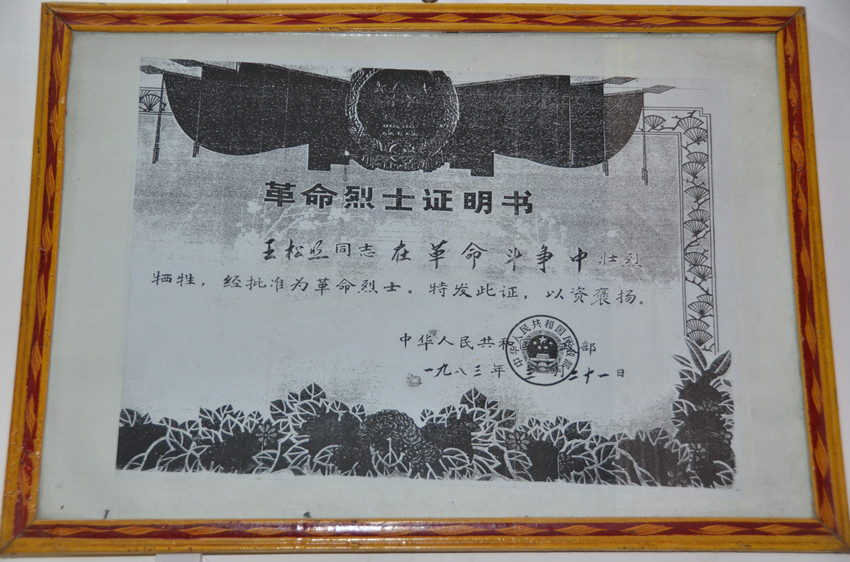 革命烈士证明书
王松兴同志在革命斗争中壮烈
牺牲，经批准为革命烈士。特发此证，以资褒扬。
中华人民共和国民政部
一九八三年三月二十一日